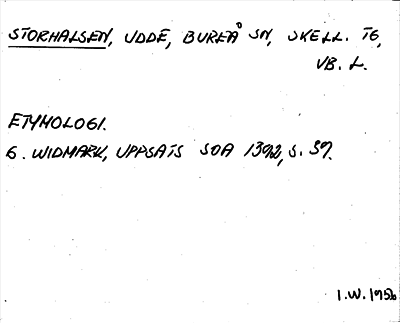 STORHALSEN, UDDE, BUREÅ SN, SKELL. TG,
VB. L.
ETYMOLOGI.
G. WIDMARK, UPPSATS SOA 1392, S. 39.
I.W. 1956